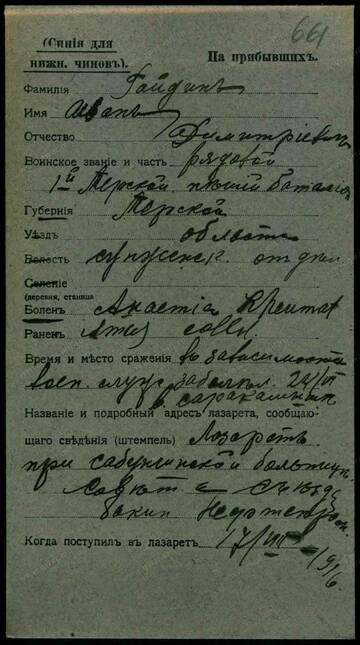 664
(Синія для
нижн. чиновъ).
На прибывшихъ.
Фамилія Гайдинъ
Имя Иванъ
Отчество Димитріевичъ
Воинское званіе и часть рядовой
1й Терской пѣшій баталіо
Губернія Терской
Уѣздъ области
Волость отдѣл
Селеніе
(деревня, станица
Боленъ
Раненъ
Время и мѣсто сраженія въ зависимости
воен. служ. заболѣл.
в Сарыкамыш
Названіе и подробный адресъ лазарета, сообщаю-
щаго свѣдѣнія (штемпель) Лазаретъ
при сабунчинской больницѣ
Совѣт Съѣзда
бакин Нефтепром
Когда поступилъ въ лазаретъ 17/VIII 1916